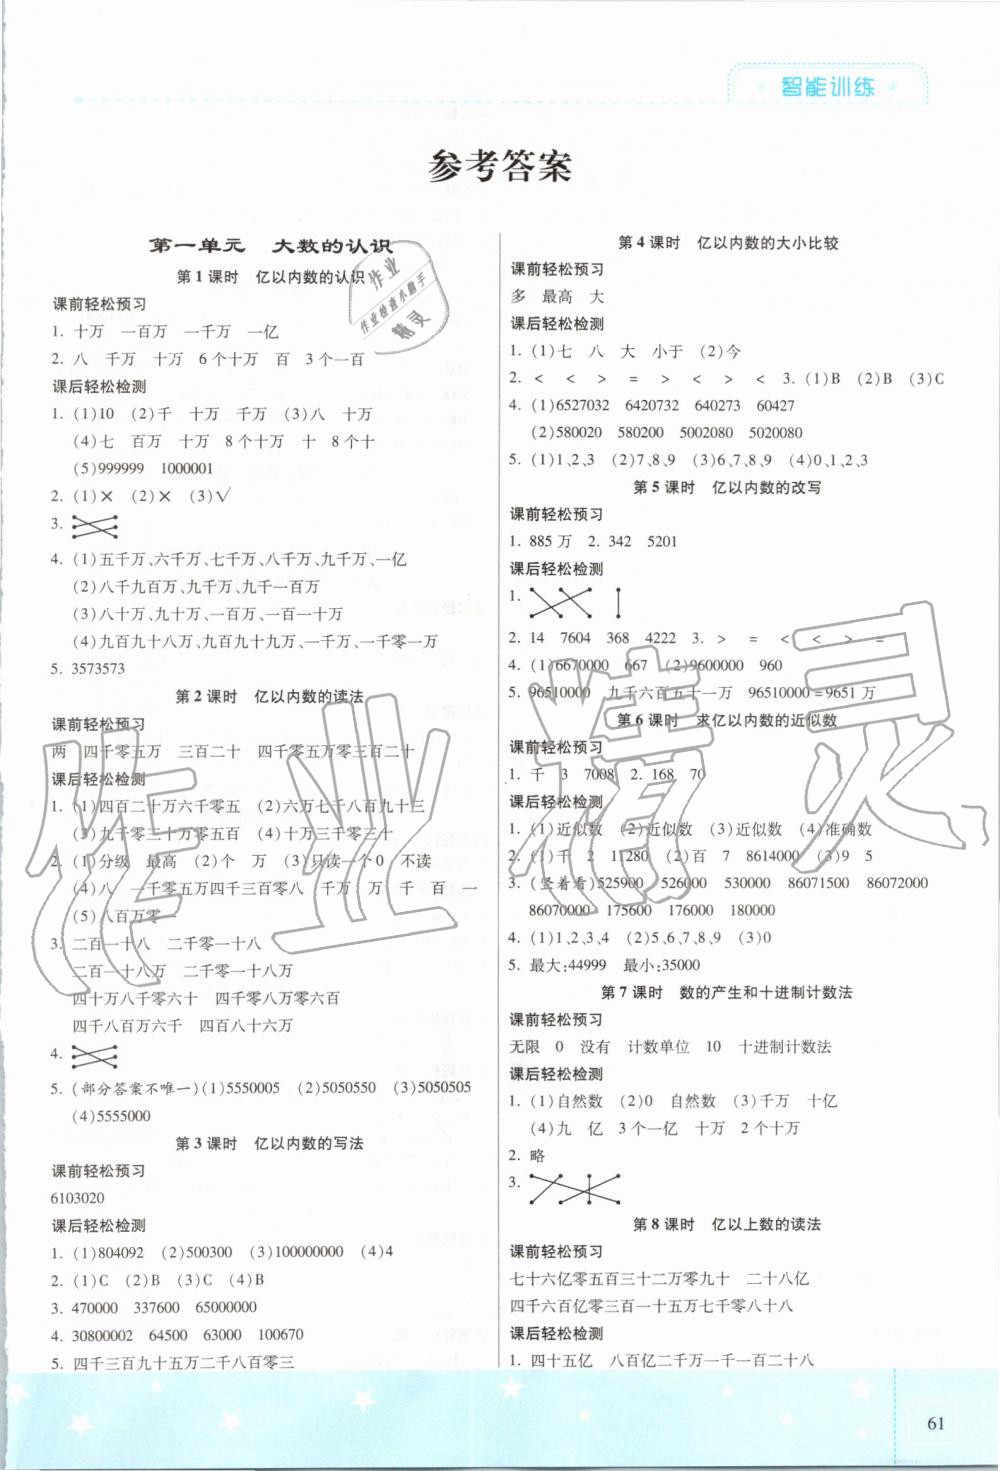 智能训练
参考答案
第一单元 大数的认识
第1课时 亿以内数的认识
课前轻松预习
1. 十万 一百万 一千万 一亿
2. 八 千万 十万 6个十万 百 3个一百
课后轻松检测
1. (1)10 (2)千 十万 千万 (3)八 十万
(4)七 百万 十万 8个十万 十 8个十
(5)999999 1000001
2. (1)× (2)× (3)√
3.
4. (1)五千万、六千万、七千万、八千万、九千万、一亿
(2)八千九百万、九千万、九千一百万
(3)八十万、九十万、一百万、一百一十万
(4)九百九十八万、九百九十九万、一千万、一千零一万
5. 3573573
第2课时 亿以内数的读法
课前轻松预习
两 四千零五万 三百二十 四千零五万零三百二十
课后轻松检测
1. (1)四百二十万六千零五 (2)六万七千八百九十三
(3)九千零三十万零五百 (4)十万三千零三十
2. (1)分级 最高 (2)个 万 (3)只读一个0 不读
(4)八 一千零五万四千三百零八 千万 万 千 百 一
(5)八百万零一
3. 二百一十八 二千零一十八
二百一十八万 二千零一十八万
四十万八千零六十 四千零八万零六百
四千八百万六千 四百八十六万
4.
5. (部分答案不唯一)(1)5550005 (2)5050550 (3)5050505
(4)5555000
第3课时 亿以内数的写法
课前轻松预习
6103020
课后轻松检测
1. (1)804092 (2)500300 (3)100000000 (4)4
2. (1)C (2)B (3)C (4)B
3. 470000 337600 65000000
4. 30800002 64500 63000 100670
5. 四千三百九十五万二千八百零三
第4课时 亿以内数的大小比较
课前轻松预习
多 最高 大
课后轻松检测
1. (1)七 八 大 小于 (2)今
2. < < > = > < > < 3. (1)B (2)B (3)C
4. (1)6527032 6420732 640273 60427
(2)580020 580200 5002080 5020080
5. (1)1、2、3 (2)7、8、9 (3)6、7、8、9 (4)0、1、2、3
第5课时 亿以内数的改写
课前轻松预习
1. 885万 2. 342 5201
课后轻松检测
1.
2. 14 7604 368 4222 3. > = < < > =
4. (1)6670000 667 (2)9600000 960
5. 96510000 九千六百五十一万 96510000=9651万
第6课时 求亿以内数的近似数
课前轻松预习
1. 千 3 7008 2. 168 70
课后轻松检测
1. (1)近似数 (2)近似数 (3)近似数 (4)准确数
2. (1)千 2 11280 (2)百 7 8614000 (3)9 5
3. (竖着看)525900 526000 530000 86071500 86072000
86070000 175600 176000 180000
4. (1)1、2、3、4 (2)5、6、7、8、9 (3)0
5. 最大:44999 最小:35000
第7课时 数的产生和十进制计数法
课前轻松预习
无限 0 没有 计数单位 10 十进制计数法
课后轻松检测
1. (1)自然数 (2)0 自然数 (3)千万 十亿
(4)九 亿 3个一亿 十万 2个十万
2. 略
3.
第8课时 亿以上数的读法
课前轻松预习
七十六亿零五百三十二万零九十 二十八亿
四千六百亿零三百一十五万七千零八十八
课后轻松检测
1. 四十五亿 八百亿二千万一千一百二十八
61
作业
作业检查小助手
精灵
作业精灵